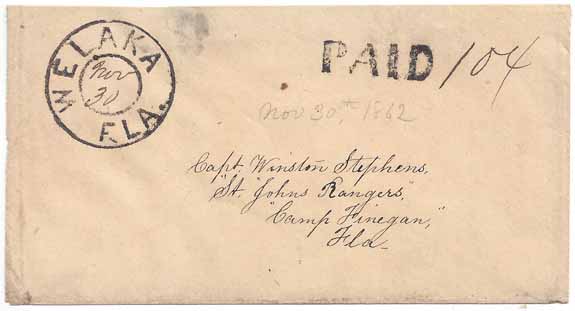 WELAKA
Nov
30
FLA.
PAID 10¢
Nov 30,th 1862
Capt. Winston Stephens,
"St. Johns Rangers",
"Camp Finegan,"
Fla-